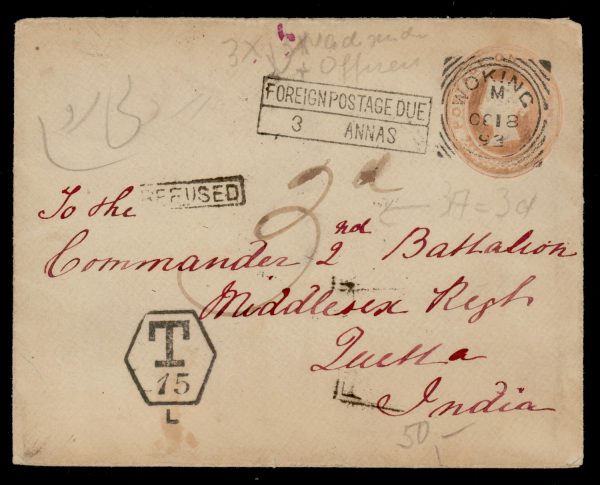 3x
+ Officers
FOREIGN POSTAGE DUE
3 ANNAS
WOKING
M
OC 18
95
REFUSED
3d
← 3A = 3d
To the
Commander 2nd Battalion
Middlesex Regt
Quetta
India
T
15
L
50,-